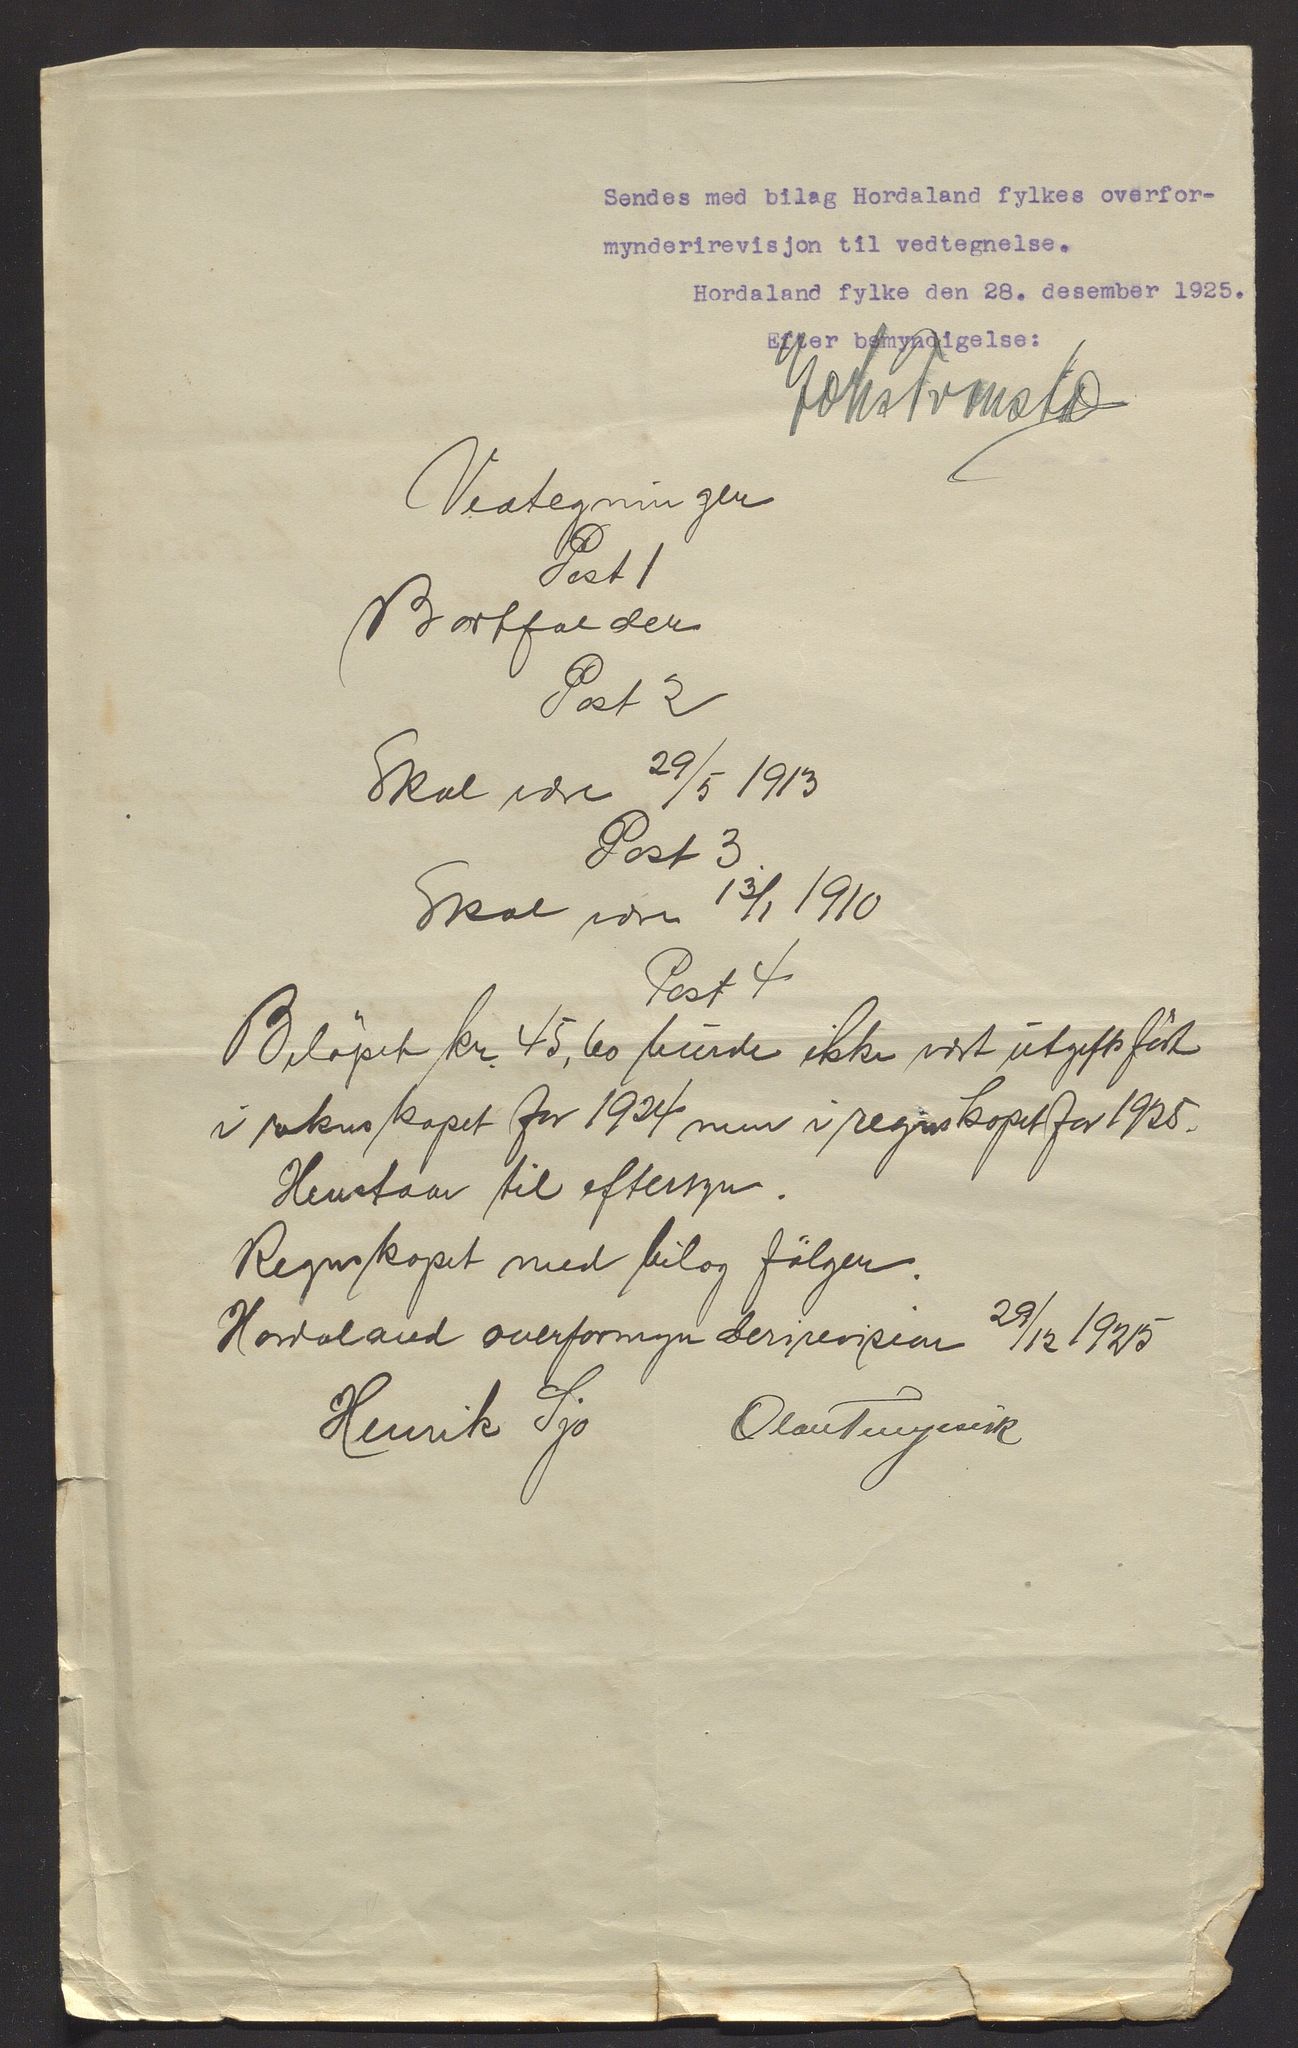 Sendes med bilag Hordaland fylkes overfor-
mynderirevisjon til vedtegnelse.
Hordaland fylke den 28. desember 1925.
Efter bemyndigelse:
Vedtegninger
Post 1
Bortfalder
Post 2
Skal være 29/5 1913
Post 3.
Skal være 13/1 1910
Post 4
Beløpet kr. 45,60 burde ikke vært utgiftsført
i reknskapet for 1924 men i regnskapet for 1925.
Henstaar til eftersyn.
Regnskapet med bilag følger.
Hordaland overformynderirevision 29/12 1925
Henrik Sjo